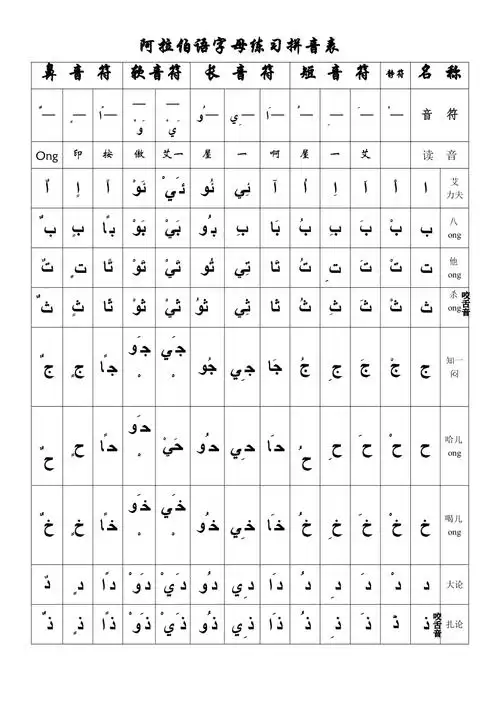 阿拉伯语字母练习拼音表
鼻音符 软音符 长音符 短音符 静符 名称
ــٌ ــٍ ــًا ــَوْ ــَيْ ــُو ــِي ــَا ــُ ــِ ــَ ــْ 音符
Ong 印 按 傲 艾一 屋 一 啊 屋 一 艾 读音
أٌ إٍ أً ئَوْ ئَيْ ئُو ئِي آ أُ إِ أَ أْ ا 艾力夫
بٌ بٍ بًا بَوْ بَيْ بُو بِي بَا بُ بِ بَ بْ ب 八ong
تٌ تٍ تًا تَوْ تَيْ تُو تِي تَا تُ تِ تَ تْ ت 他ong
ثٌ ثٍ ثًا ثَوْ ثَيْ ثُو ثِي ثَا ثُ ثِ ثَ ثْ ث 杀ong 咬舌音
جٌ جٍ جًا جَوْ جَيْ جُو جِي جَا جُ جِ جَ جْ ج 知一闷
حٌ حٍ حًا حَوْ حَيْ حُو حِي حَا حُ حِ حَ حْ ح 哈儿ong
خٌ خٍ خًا خَوْ خَيْ خُو خِي خَا خُ خِ خَ خْ خ 喝儿ong
دٌ دٍ دًا دَوْ دَيْ دُو دِي دَا دُ دِ دَ دْ د 大论
ذٌ ذٍ ذًا ذَوْ ذَيْ ذُو ذِي ذَا ذُ ذِ ذَ ذْ ذ 扎论 咬舌音